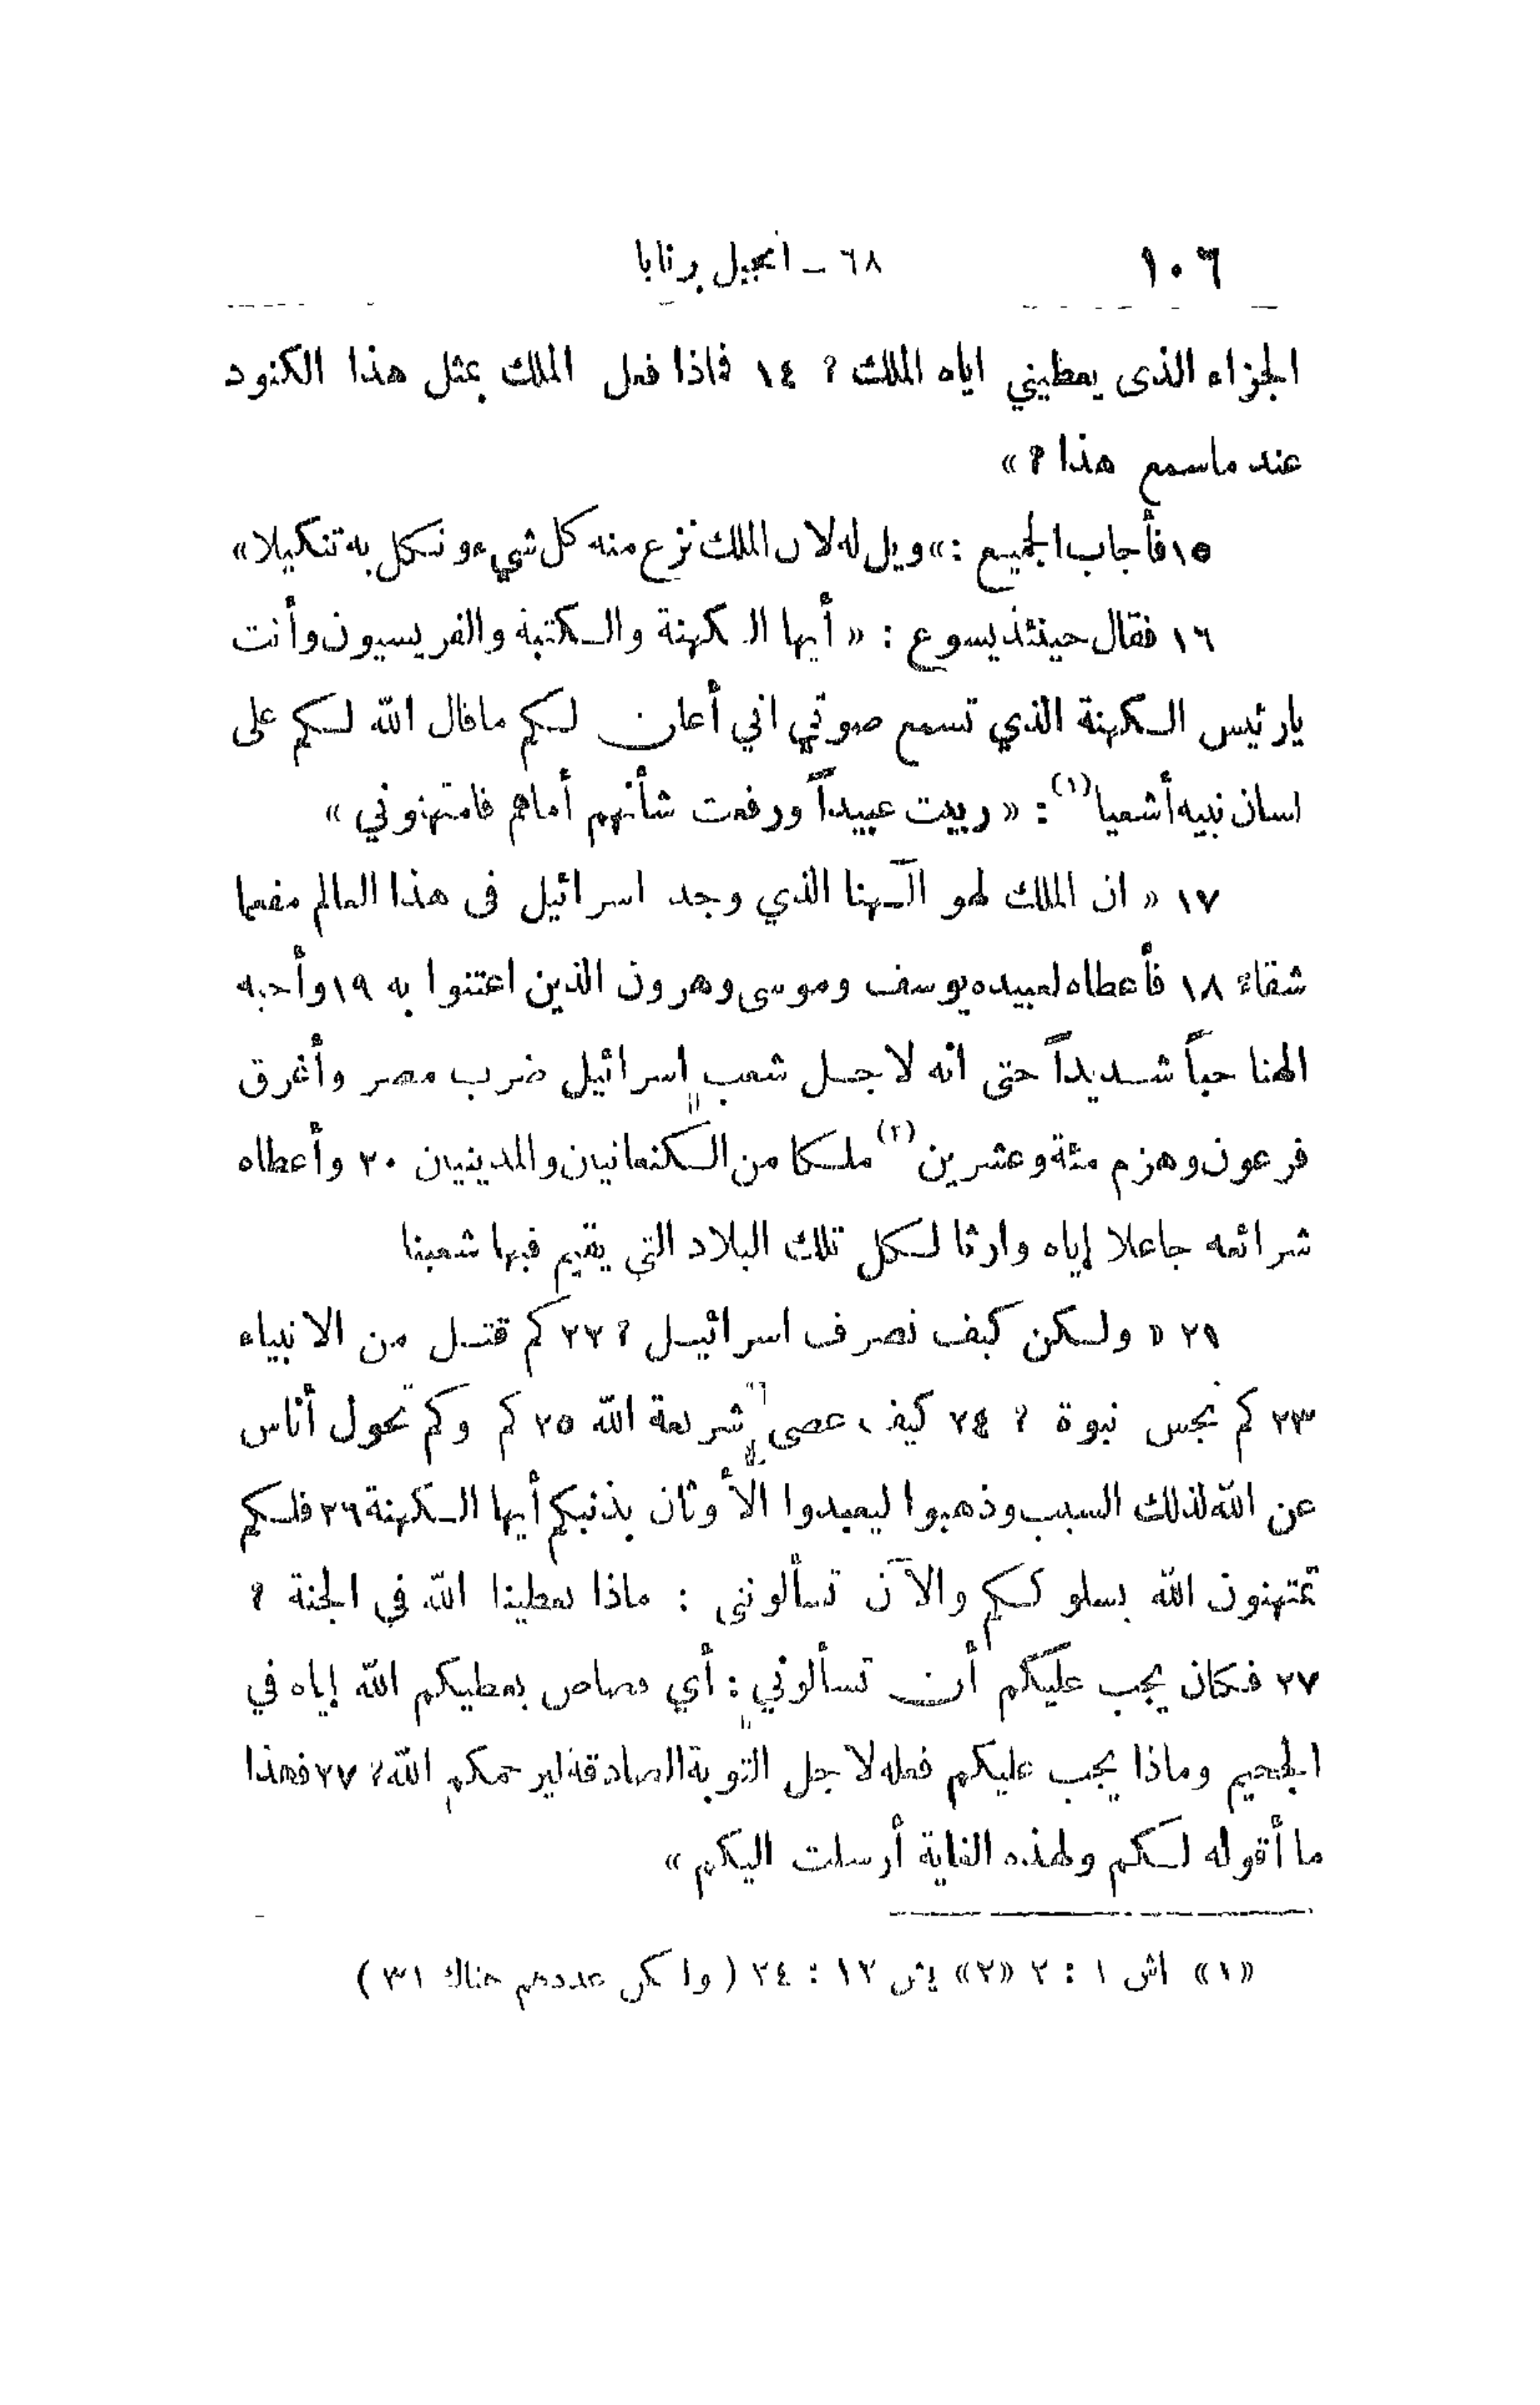 ١٠٦
٦٨ – انجيل برنابا
الجزاء الذى يعطيني اياه الملك ؟ ١٤ فاذا فعل الملك بمثل هذا الكنود
عند ماسمع هذا ؟ »
١٥ فأجاب الجميع : » ويل له لان الملك نزع منه كل شيء ونكل به تنكيلا »
١٦ فقال حينئذ يسوع : « أيها الكهنة والكتبة والفريسيون وأنت
يارئيس الكهنة الذي تسمع صوتي اني أعلن لكم ماقال الله لكم على
لسان نبيه أشعيا (١) : « ربيت عبيداً ورفعت شأنهم أماهم فامتهنوني »
١٧ « ان الملك لهو آلهنا الذي وجد اسرائيل فى هذا العالم مفعما
شقاءً ١٨ فأعطاه لعبيده يوسف وموسى وهرون الذين اعتنوا به ١٩ وأحبه
الهنا حباً شديداً حتى انه لاجل شعب إسرائيل ضرب مصر وأغرق
فرعون وهزم مئة وعشرين (٢) ملكا من الكنعانيين والمدينيين ٢٠ وأعطاه
شرائعه جاعلا إياه وارثا لكل تلك البلاد التي يقيم فيها شعبنا
٢١ « ولكن كيف تصرف اسرائيل ؟ ٢٢ كم قتل من الانبياء
٢٣ كم نجس نبوة ؟ ٢٤ كيف عصى شريعة الله ٢٥ كم وكم تحول أناس
عن الله لذلك السبب وذهبوا ليعبدوا الأوثان بذنبكم أيها الكهنة ٢٦ فلكم
تمتهنون الله بسلوككم والآن تسألونني : ماذا يعطينا الله في الجنة ؟
٢٧ فكان يجب عليكم أن تسألوني : أي قصاص يعطيكم الله إياه في
الجحيم وماذا يجب عليكم فعله لاجل التوبة الصادقة ليرحمكم الله ؟ ٢٧ فهذا
ما أقوله لكم ولهذه الغاية أرسلت اليكم »
«١» اش ١ : ٢ «٢» يش ١٢ : ٢٤ ( ولكن عددهم هناك ٣١ )